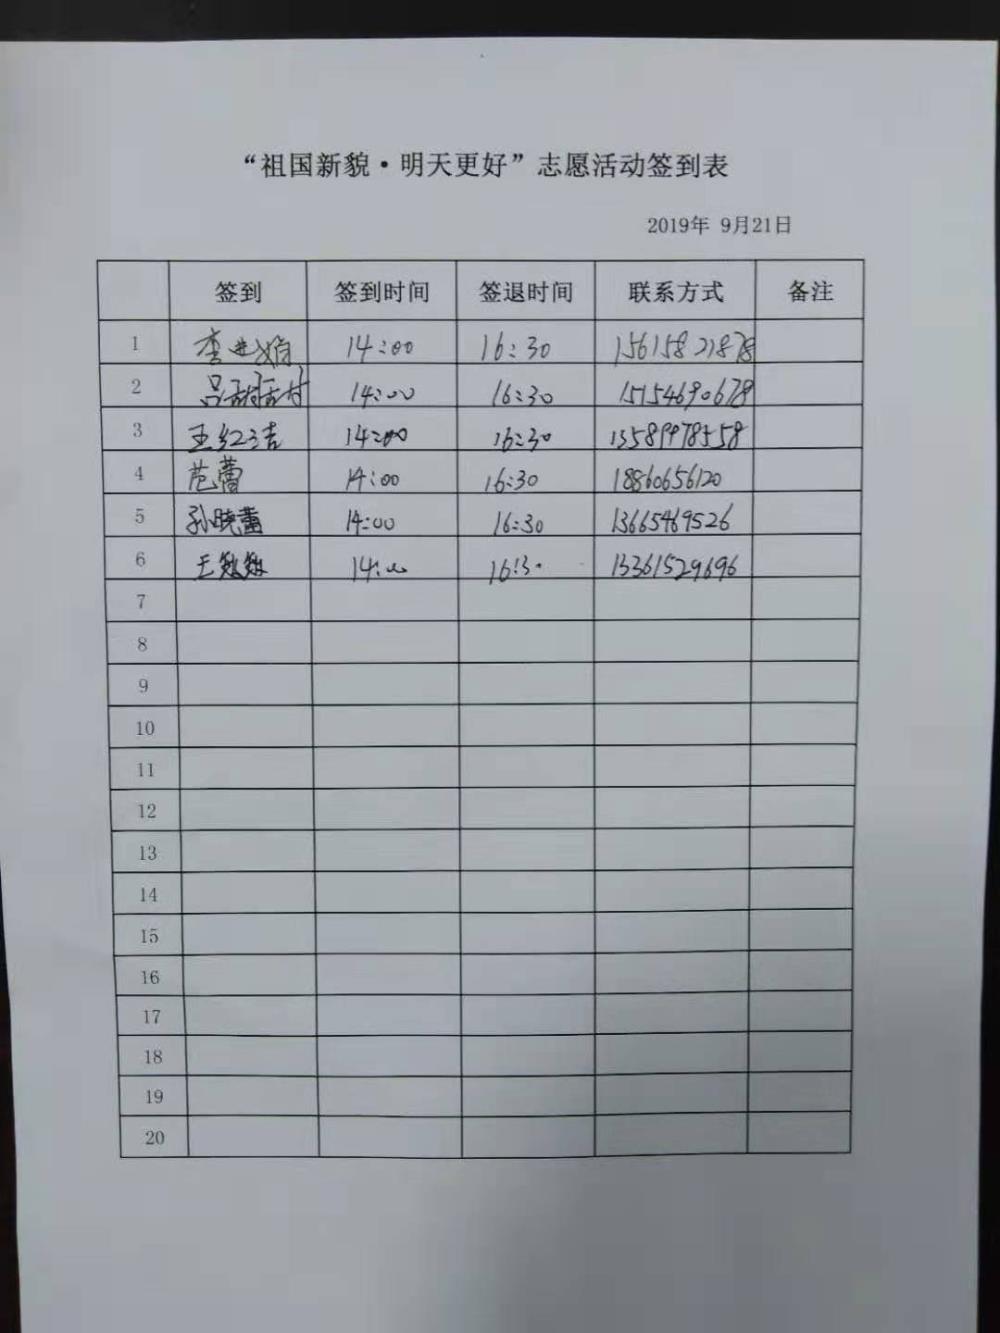 “祖国新貌·明天更好”志愿活动签到表
2019年 9月21日
签到 签到时间 签退时间 联系方式 备注
1 李 14:00 16:30 15615821878
2 吕 14:00 16:30 15154690678
3 王红吉 14:00 16:30 13589978558
4 范蕾 14:00 16:30 18860656120
5 孙晓蕾 14:00 16:30 13665469526
6 王 14:00 16:30 13361529696
7
8
9
10
11
12
13
14
15
16
17
18
19
20